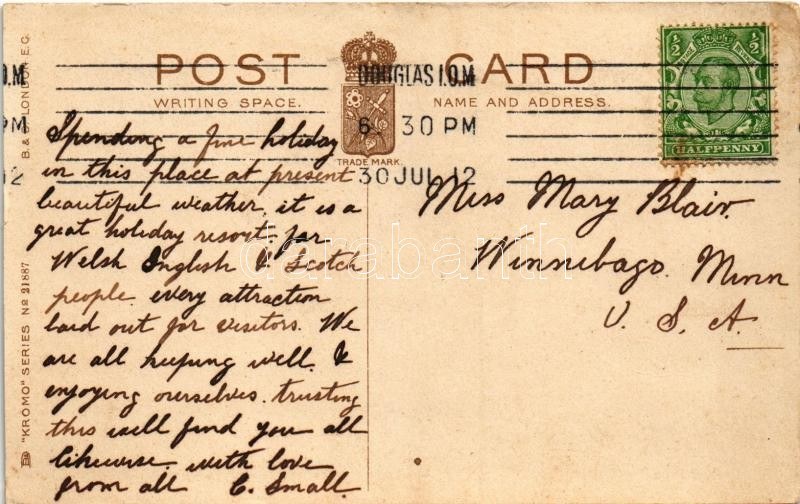 POST CARD
WRITING SPACE.
NAME AND ADDRESS.
TRADE MARK.
DOUGLAS I.O.M
6 30 PM
30 JUL 12
O.M
PM
12
1/2 1/2
HALFPENNY
B. & LONDON, E.C.
"KROMO" SERIES No 21887
Spending a fine holiday
in this place at present
beautiful weather. it is a
great holiday resort. for
Welsh English & Scotch
people every attraction
laid out for visitors. We
are all keeping well. &
enjoying ourselves. trusting
this will find you all
likewise. with love
from all E. Small.
Miss Mary Blair.
Winnebago. Minn
U. S. A.
darabanth